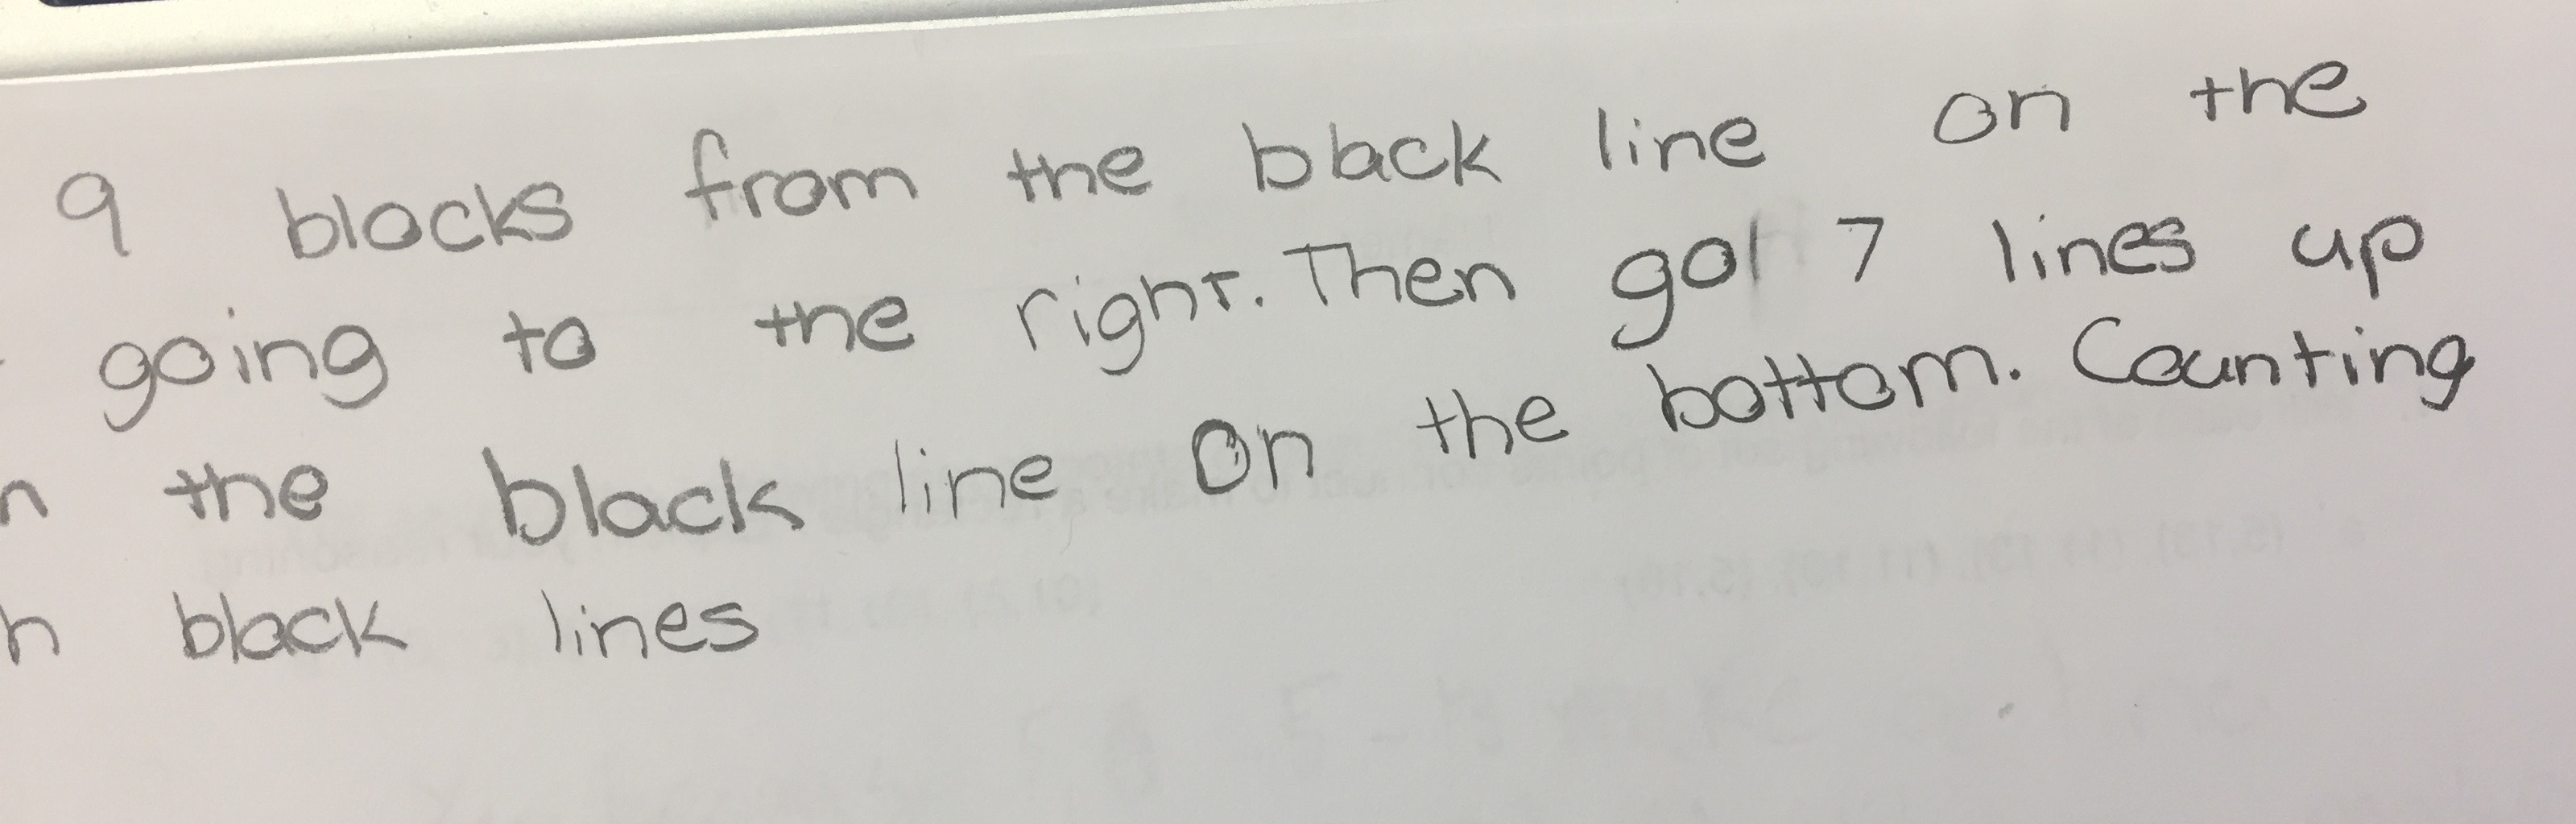 9 blocks from the black line on the
going to the right. Then go 7 lines up
the black line on the bottom. Counting
black lines